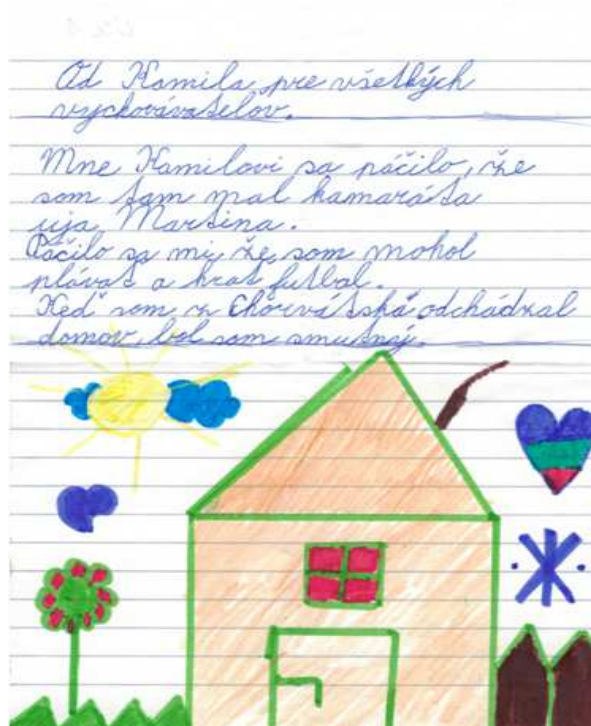 Od Kamila pre všetkých
vychovávateľov.
Mne Kamilovi sa páčilo, že
som tam mal kamaráta
uja Martina.
Páčilo sa mi, že som mohol
plávať a hrať futbal.
Keď som z Chorvátska odchádzal
domov, bol som smutný.